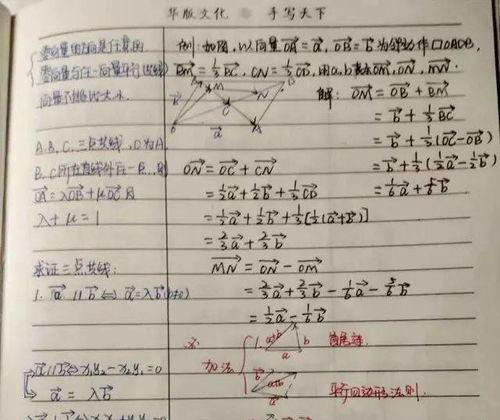 华版文化 手写天下
零向量的方向是任意的
零向量与任一向量平行(共线)
向量不能比大小.
A, B, C, 三点共线, O为A.
B, C所在直线外任一点, 则
OA = λOB + μOC 且
λ + μ = 1
求证三点共线:
1. a // b ⇔ a = λb (b≠0)
a // b ⇔ x₁y₂ - x₂y₁ = 0
a = λb
例: 如图, 以向量 OA = a, OB = b 为邻边作 □OADB,
BM = 1/3 BC, CN = 1/3 CD, 用a, b表示OM, ON, MN.
解: OM = OB + BM
= b + 1/3 BC
= b + 1/3 (OC - OB)
= b + 1/3 (1/2 a - 1/2 b)
= 1/6 a + 5/6 b
ON = OC + CN
= 1/2 a + 1/2 b + 1/3 CD
= 1/2 a + 1/2 b + 1/3 [1/2 (a + b)]
= 2/3 a + 2/3 b
MN = ON - OM
= 2/3 a + 2/3 b - 1/6 a - 5/6 b
= 1/2 a - 1/6 b
加法
1. a+b b 首尾连
a
平行四边形法则.